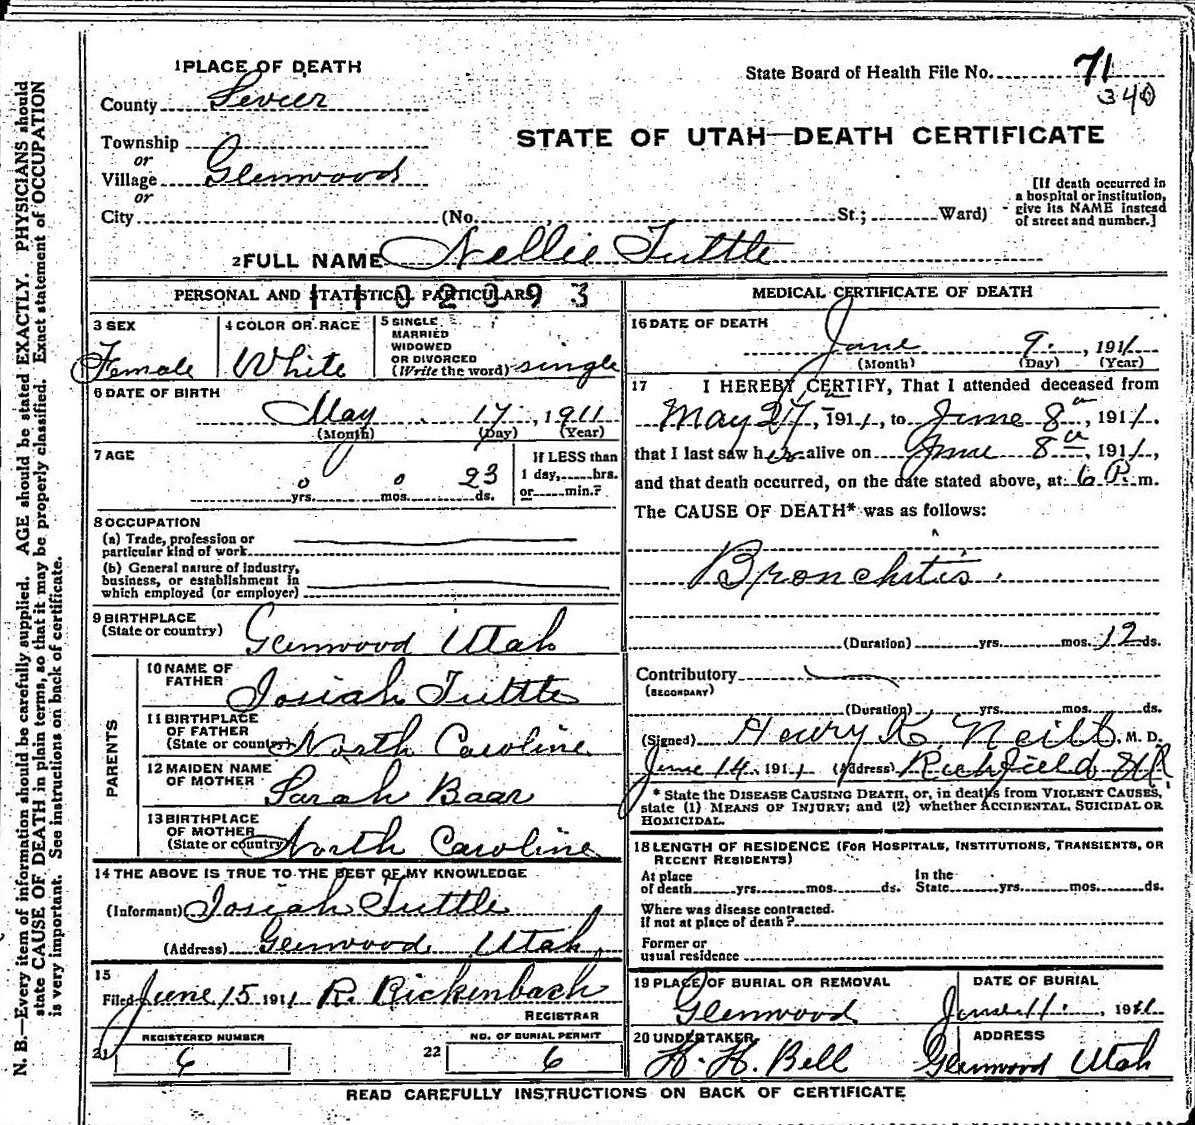 1 PLACE OF DEATH
County Sevier
Township
or
Village Glenwood
or
City (No. St.; Ward)
State Board of Health File No. 71
340
STATE OF UTAH—DEATH CERTIFICATE
[If death occurred in
a hospital or institution,
give its NAME instead
of street and number.]
2 FULL NAME Nellie Tuttle
PERSONAL AND STATISTICAL PARTICULARS
1102093
3 SEX
Female
4 COLOR OR RACE
White
5 SINGLE
MARRIED
WIDOWED
OR DIVORCED
(Write the word) single
6 DATE OF BIRTH
May 17, 1911
(Month) (Day) (Year)
7 AGE
0 yrs. 0 mos. 23 ds.
If LESS than
1 day, hrs.
or min.?
8 OCCUPATION
(a) Trade, profession or
particular kind of work
(b) General nature of industry,
business, or establishment in
which employed (or employer)
9 BIRTHPLACE
(State or country) Glenwood Utah
PARENTS
10 NAME OF
FATHER Josiah Tuttle
11 BIRTHPLACE
OF FATHER
(State or country) North Caroline
12 MAIDEN NAME
OF MOTHER Sarah Baar
13 BIRTHPLACE
OF MOTHER
(State or country) North Caroline
14 THE ABOVE IS TRUE TO THE BEST OF MY KNOWLEDGE
(Informant) Josiah Tuttle
(Address) Glenwood Utah
15
Filed June 15 1911 R. Rickenbach
REGISTRAR
21 REGISTERED NUMBER
6
22 NO. OF BURIAL PERMIT
6
MEDICAL CERTIFICATE OF DEATH
16 DATE OF DEATH
June 9, 1911
(Month) (Day) (Year)
17 I HEREBY CERTIFY, That I attended deceased from
May 27, 1911, to June 8, 1911.
that I last saw her alive on June 8, 1911,
and that death occurred, on the date stated above, at 6 P. m.
The CAUSE OF DEATH* was as follows:
Bronchitis.
(Duration) yrs. mos. 12 ds.
Contributory
(SECONDARY)
(Duration) yrs. mos. ds.
(Signed) Henry K. M. D.
June 14, 1911 (Address) Richfield
* State the DISEASE CAUSING DEATH, or, in deaths from VIOLENT CAUSES,
state (1) MEANS OF INJURY; and (2) whether ACCIDENTAL, SUICIDAL OR
HOMICIDAL.
18 LENGTH OF RESIDENCE (FOR HOSPITALS, INSTITUTIONS, TRANSIENTS, OR
RECENT RESIDENTS)
At place
of death yrs. mos. ds.
In the
State yrs. mos. ds.
Where was disease contracted.
if not at place of death?
Former or
usual residence
19 PLACE OF BURIAL OR REMOVAL
Glenwood
DATE OF BURIAL
June 11, 1911
20 UNDERTAKER
H. H. Bell
ADDRESS
Glenwood Utah
READ CAREFULLY INSTRUCTIONS ON BACK OF CERTIFICATE
N. B.—Every item of information should be carefully supplied. AGE should be stated EXACTLY. PHYSICIANS should
state CAUSE OF DEATH in plain terms, so that it may be properly classified. Exact statement of OCCUPATION
is very important. See instructions on back of certificate.